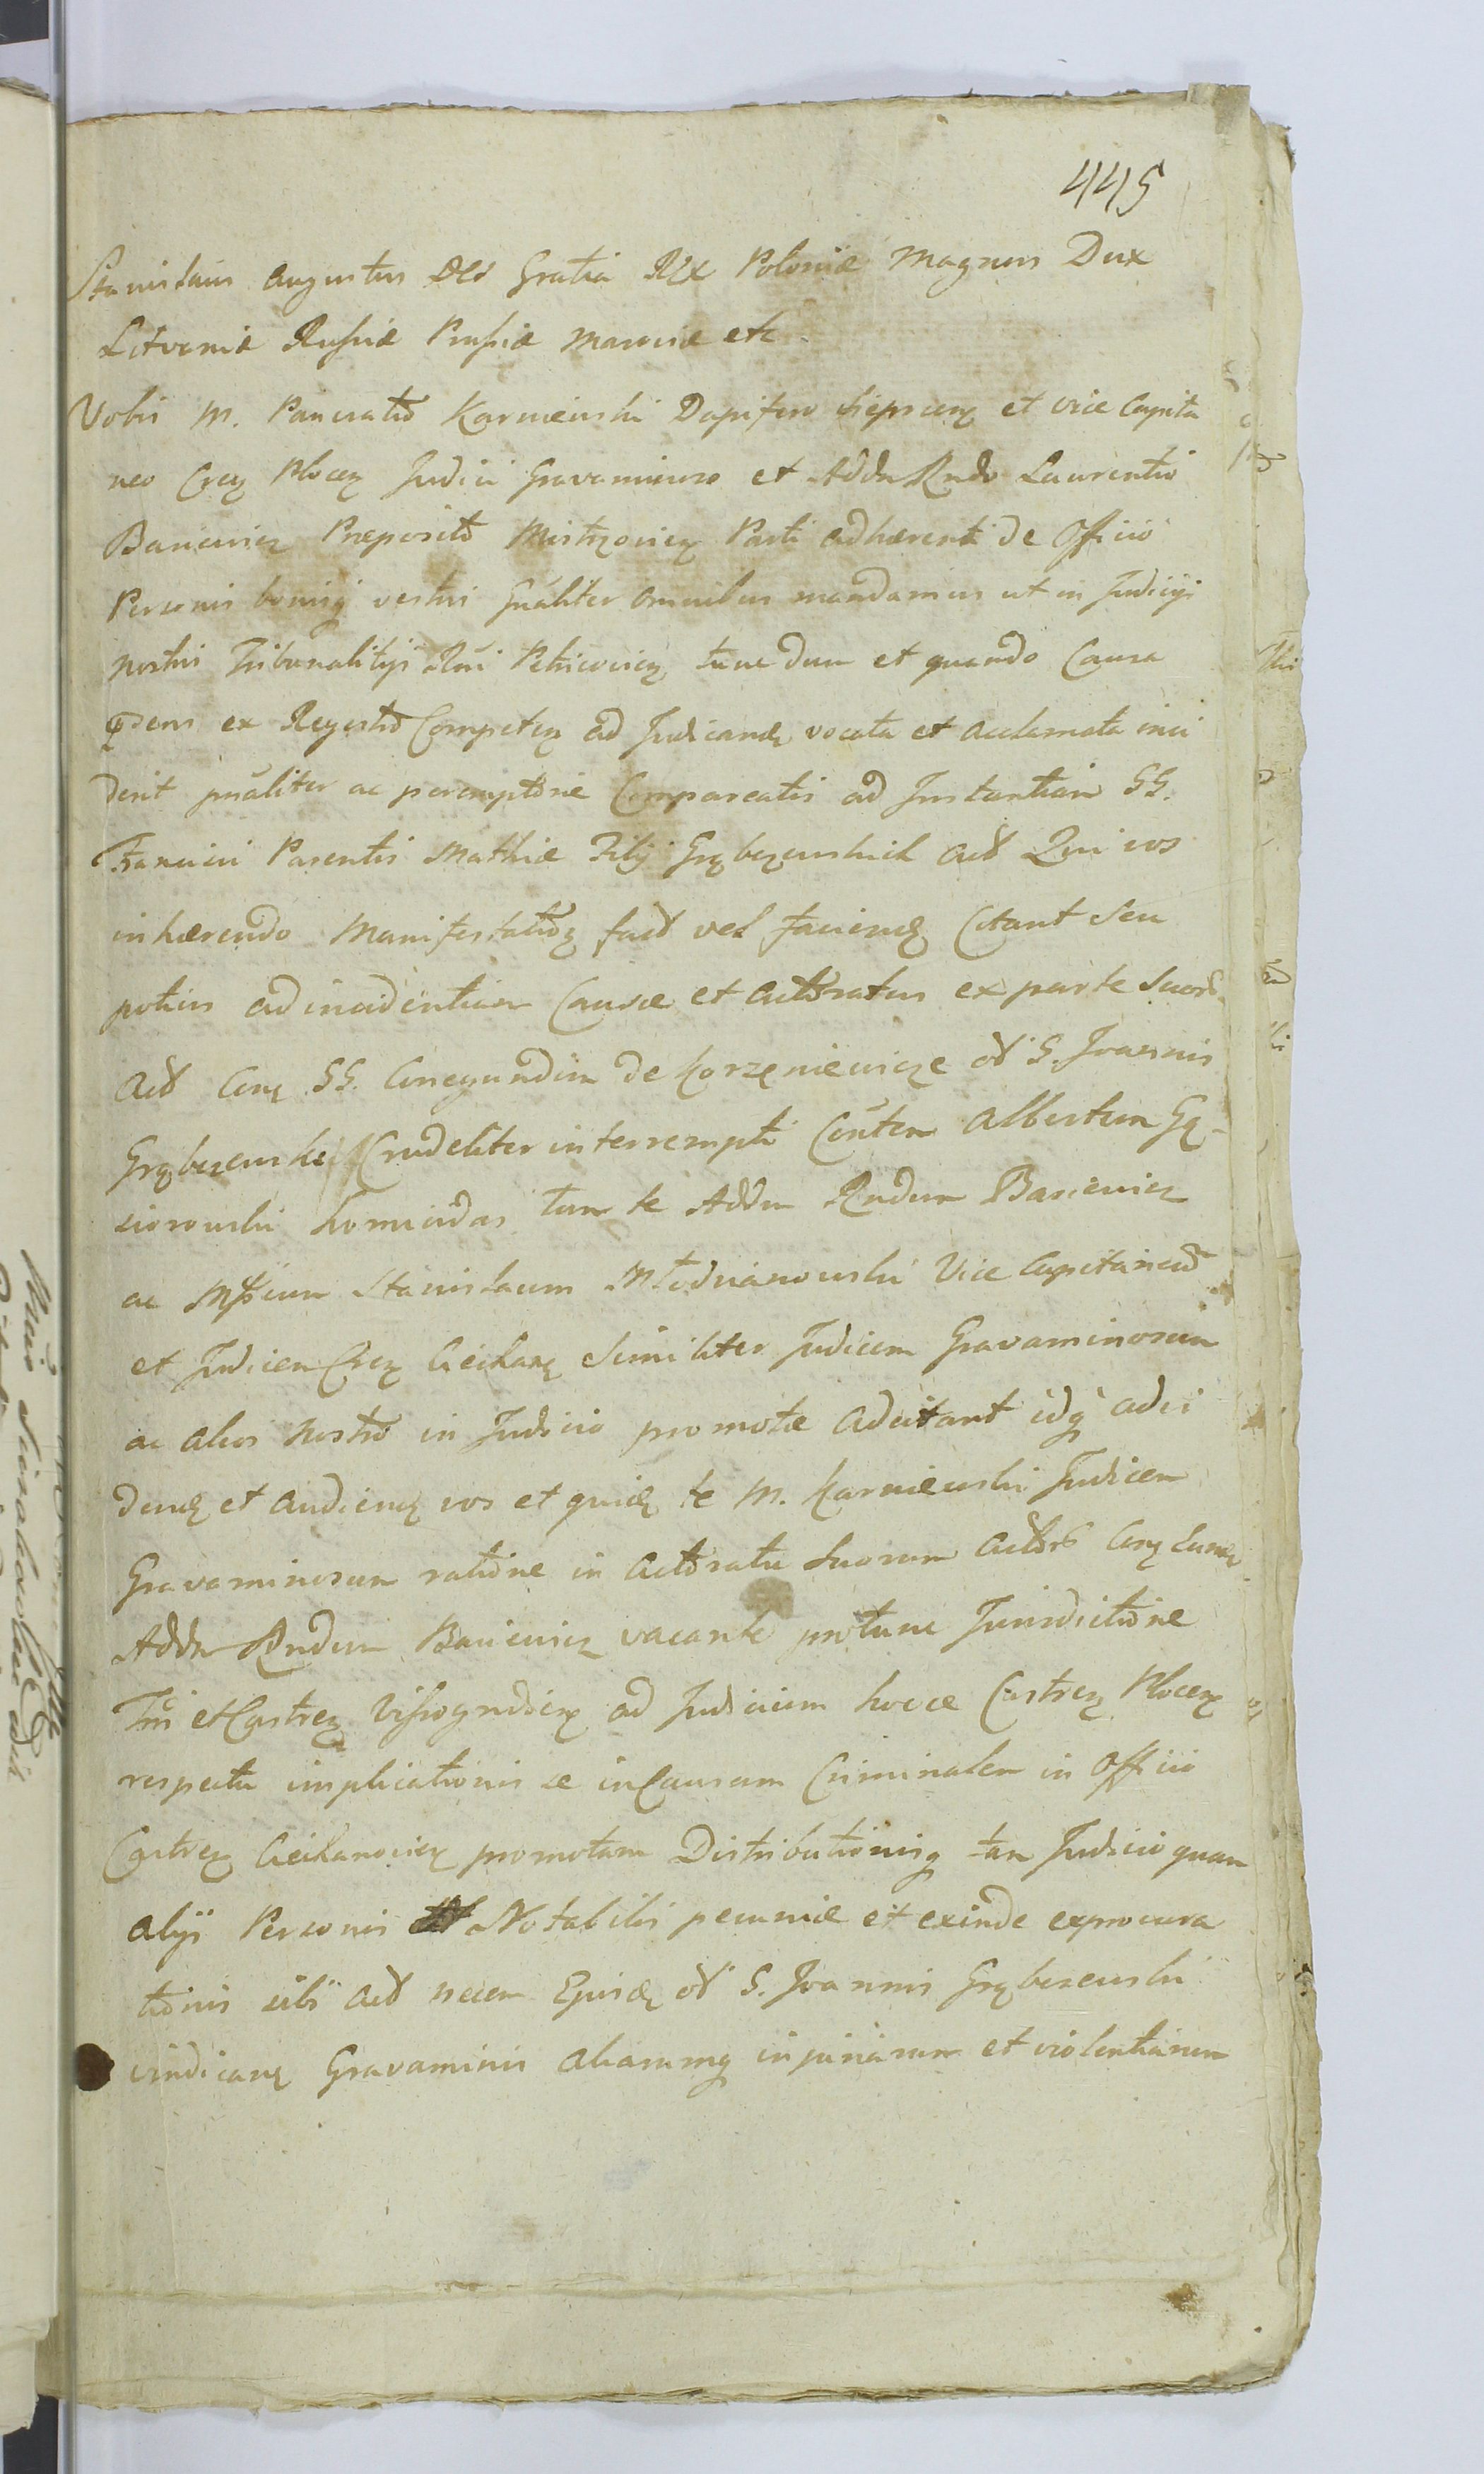 445
Stanislaus Augustus Dei Gratia Rex Poloniæ Magnus Dux
Litvaniæ Russiæ Prussiæ Masoviæ etc.
Vobis M. Pancratio Karniewski Dapifero Sieprcen et vice Capita
neo Cren Plocen Judici Gravaminoso et Addm Rndo Laurentio
Baniewicz Præposito Mistrzovien Parti adhærenti de Officio
Personis bonisq vestris gnaliter omnibus mandamus ut in Judicijs
nostris Tribunalitijs Rni Petricovien tunc dum et quando Causa
pns ex Regestro Competen ad Judicand vocata et acclamata inci
derit pnaliter ac peremptorie Compareatis ad Instantiam GG.
Francisci Parentis Mathiæ Filij Grąbczewskich Act Qui vos
inhærendo Manifestation fact vel faciend Citant seu
potius ad incidentiam Causæ et actoratus ex parte suor
Act Con GG. Cunegundim de Korzeniewicze ol G. Joannis
Grąbczewski Crudeliter interrempti Contem Albertum Gą
siorowski homicidas tum te Addm Rndum Baniewicz
ac Mfficum Stanislaum Młodzianowski Vice Capitaneum
et Judicem Cren Ciechan Similiter Judicem Gravaminosum
ac alios nostro in Judicio promotæ adcitant idq adci
dend et audiend vos et quid te M. Karniewski Judicem
Gravaminosum ratione in actoratu suorum Actor Con eund
Addm Rndum Baniewicz vacante protunc Jurisdictione
Tri et Castren Vissogrodien ad Judicium hocce Castren Plocen
respectu implicationis se in Causam Criminalem in Officio
Castren Ciechanovien promotam Distributionisq tam Judicio quam
alijs Personis Notabilis pecuniæ et exinde exprocura
tionis sibi act necem Ejusd ol G. Joannis Grąbczewski
vindican Gravaminis aliarumq injuriarum et violentiarum